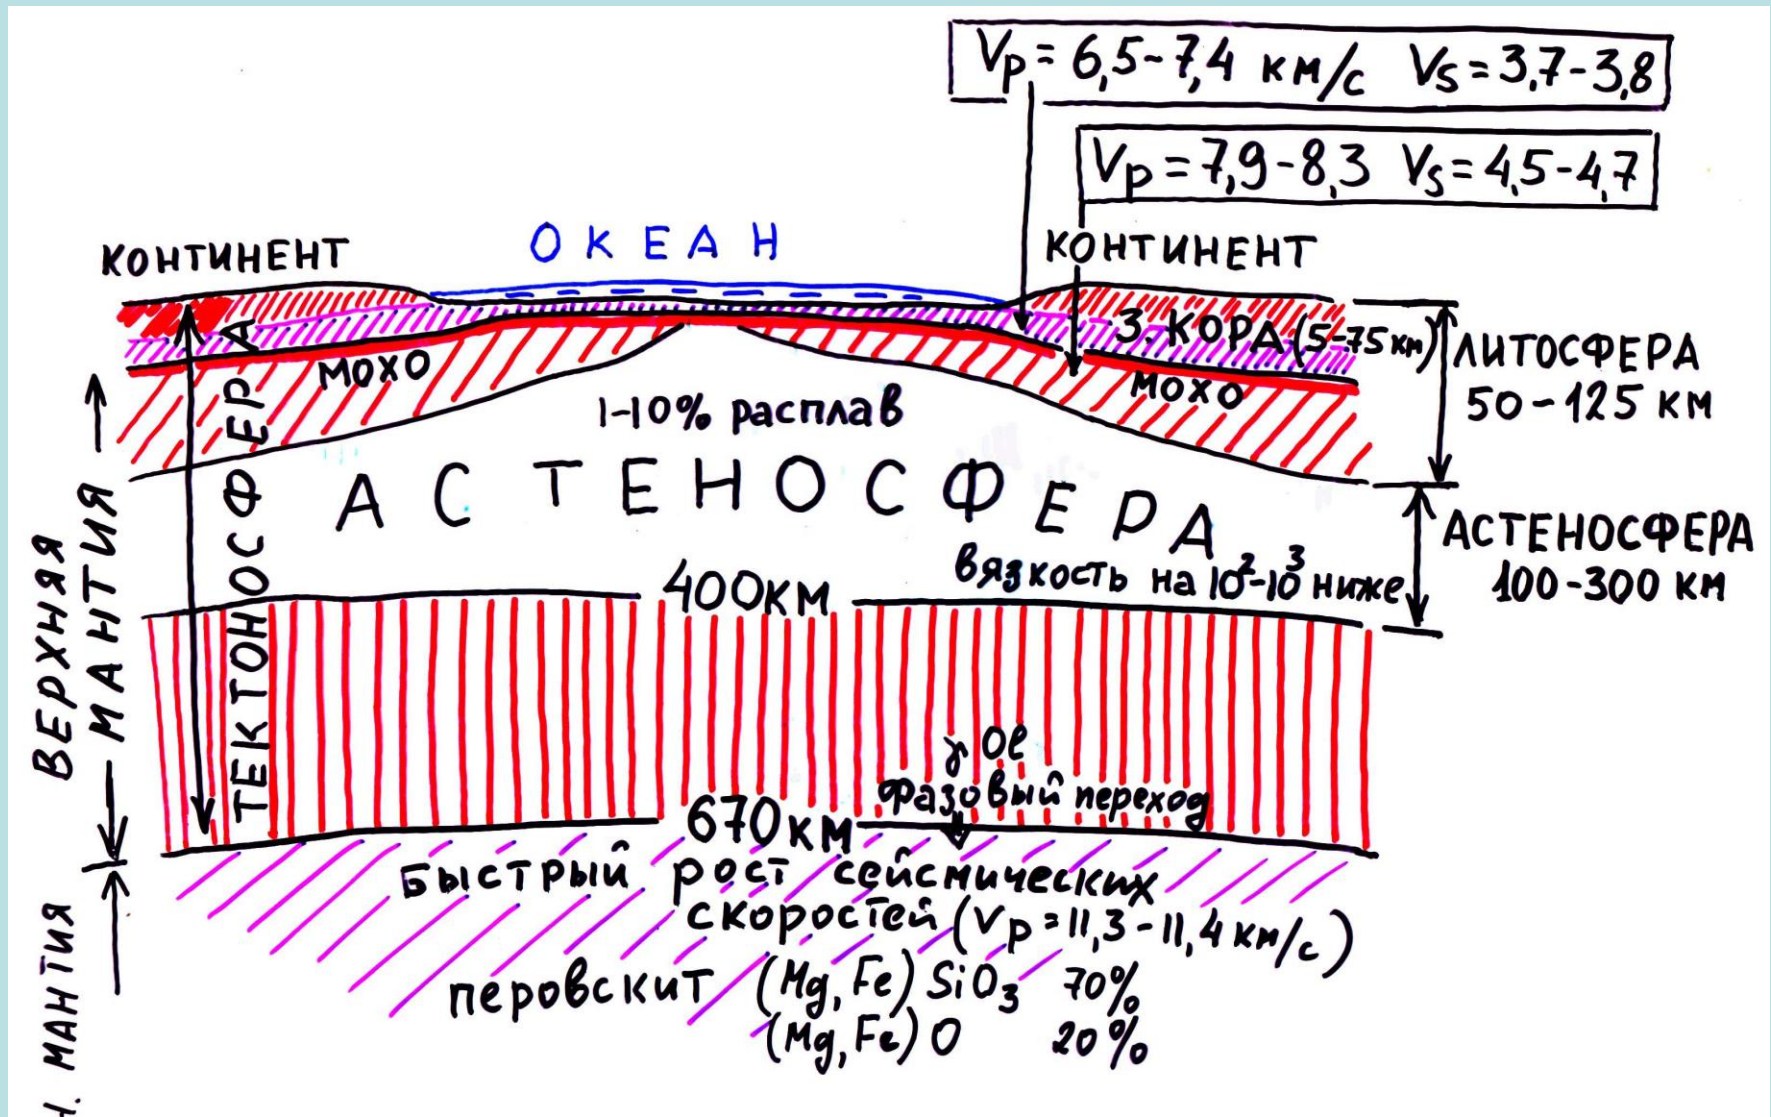 Vp = 6,5-7,4 км/с Vs = 3,7-3,8
Vp = 7,9-8,3 Vs = 4,5-4,7
КОНТИНЕНТ
ОКЕАН
КОНТИНЕНТ
З. КОРА (5-75 км)
МОХО
МОХО
ЛИТОСФЕРА
50-125 км
1-10% расплав
АСТЕНОСФЕРА
вязкость на 10²-10³ ниже
АСТЕНОСФЕРА
100-300 км
400км
ТЕКТОНОСФЕРА
ВЕРХНЯЯ
МАНТИЯ
γ Ol
фазовый переход
670км
Быстрый рост сейсмических
скоростей (Vp = 11,3-11,4 км/с)
перовскит (Mg, Fe) SiO₃ 70%
(Mg, Fe) O 20%
Н. МАНТИЯ